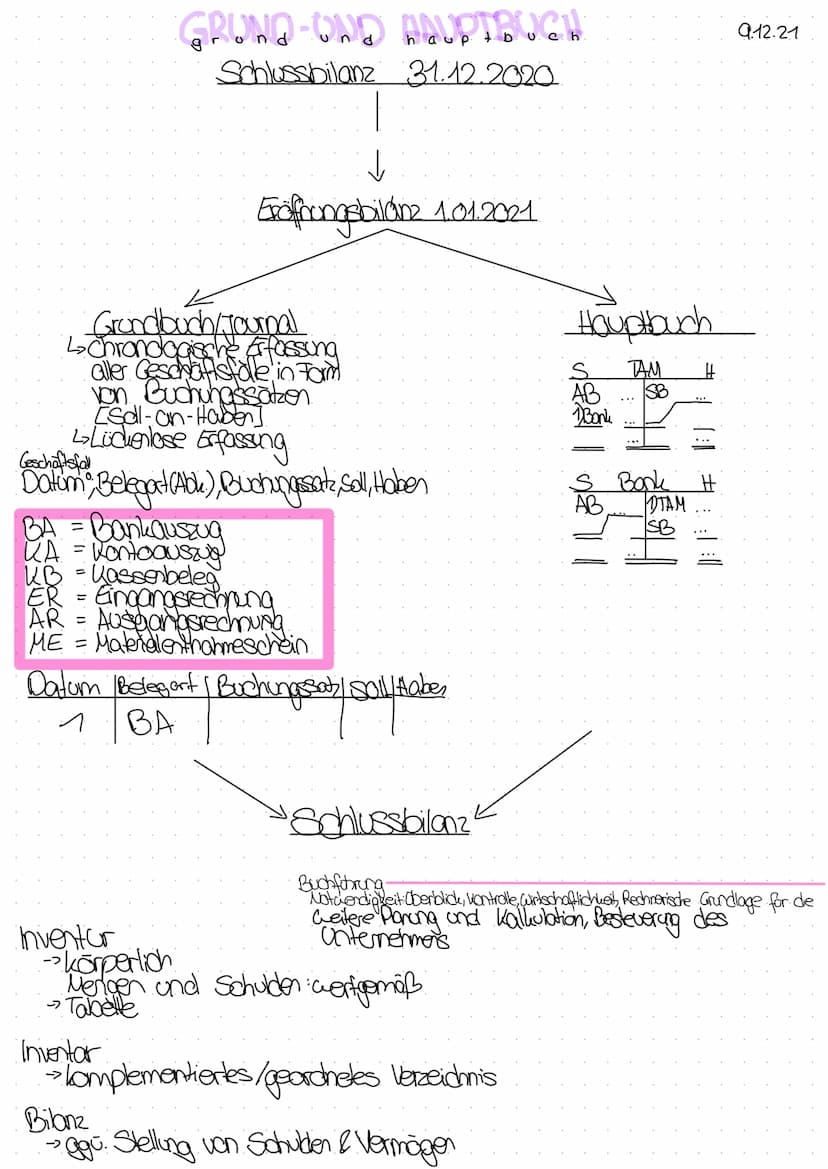 GRUND-UND HAUPTBUCH
grund und hauptbuch
9.12.21
Schlussbilanz 31.12.2020
Eröffnungsbilanz 1.01.2021
Grundbuch/Journal
↳Chronologische Erfassung
aller Geschäftsfälle in Form
von Buchungssätzen
[Soll-an-Haben]
↳Lückenlose Erfassung
Geschäftsfall
Datum, Belegart (Abk.), Buchungssatz, Soll, Haben
BA = Bankauszug
KA = Kontoauszug
KB = Kassenbeleg
ER = Eingangsrechnung
AR = Ausgangsrechnung
ME = Materialentnahmeschein
Datum | Belegart | Buchungssatz | Soll | Haben
1 BA
Hauptbuch
S TAM H
AB ... SB ...
1)Bank ...
... ...
S Bank H
AB ... 1)TAM ...
SB ...
... ...
Schlussbilanz
Buchführung
Notwendigkeit: Überblick, Kontrolle, Wirtschaftlichkeit, Rechnerische Grundlage für die
weitere Planung und Kalkulation, Besteuerung des
Unternehmens
Inventur
→ körperlich
Mengen und Schulden: wertgemäß
→ Tabelle
Inventar
→ komplementiertes/geordnetes Verzeichnis
Bilanz
→ ggü. Stellung von Schulden & Vermögen